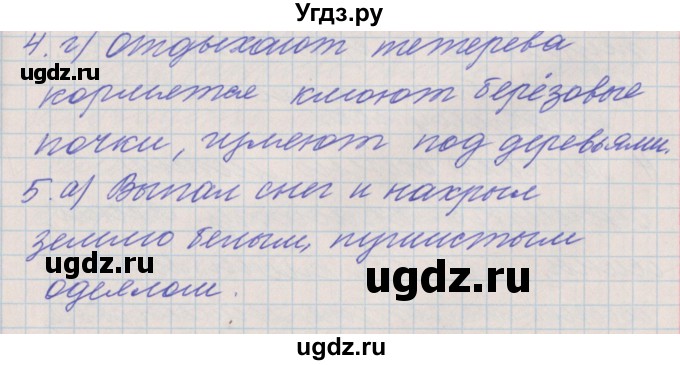 Угдз.ру
4. г) Отдыхают тетерева
ugdz.ru
ugdz.ru
кормятся клюют берёзовые
почки, гумеют под деревьями.
ugdz.ru
5. а) Выпал снег и накрыл
землю белым, пушистым
ugdz.ru
ugdz.ru
одеялом.
ugdz.ru